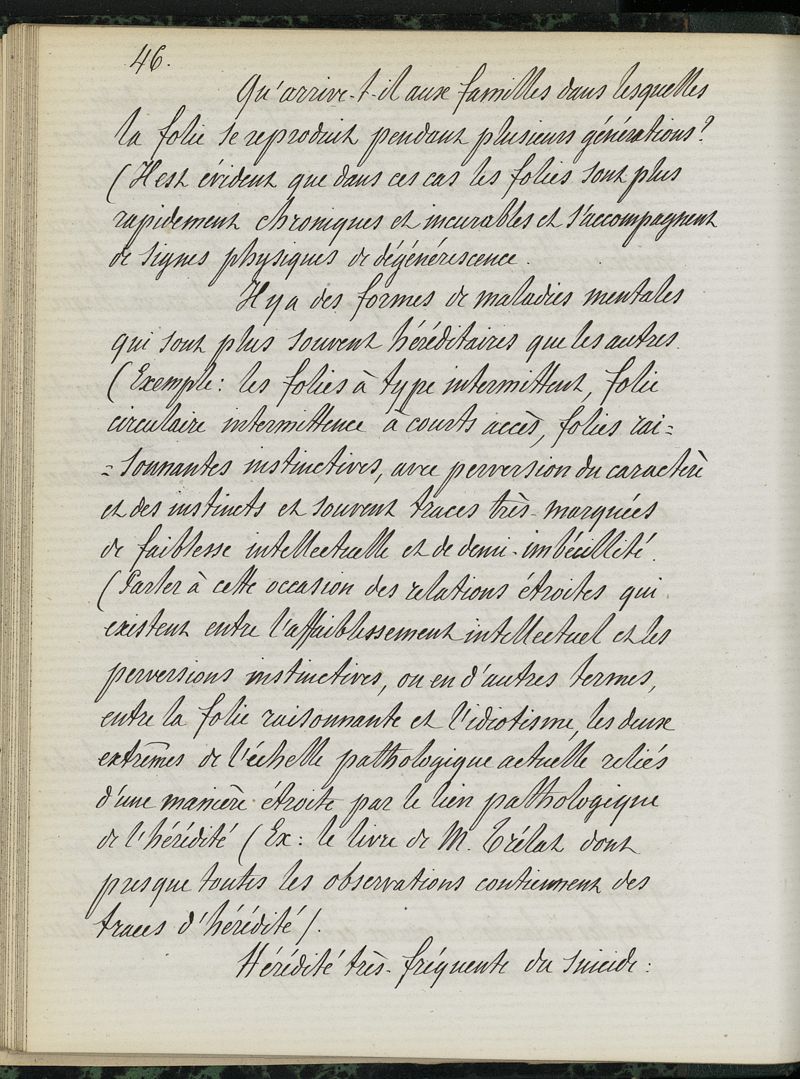 46.
Qu'arrive-t-il aux familles dans lesquelles
la folie se reproduit pendant plusieurs générations?
(Il est évident que dans ces cas les folies sont plus
rapidement chroniques et incurables et s'accompagnent
de signes physiques de dégénérescence.
Il y a des formes de maladies mentales
qui sont plus souvent héréditaires que les autres.
(Exemple: les folies à type intermittent, folie
circulaire intermittence à courts accès, folies rai=
=sonnantes instinctives, avec perversion du caractère
et des instincts et souvent traces très-marquées
de faiblesse intellectuelle et de demi-imbécillité.
(Parler à cette occasion des relations étroites qui
existent entre l'affaiblissement intellectuel et les
perversions instinctives, ou en d'autres termes,
entre la folie raisonnante et l'idiotisme, les deux
extrêmes de l'échelle pathologique actuelle reliés
d'une manière étroite par le lien pathologique
de l'hérédité (Ex: le livre de M. Trélat dont
presque toutes les observations contiennent des
traces d'hérédité).
Hérédité très-fréquente du suicide: